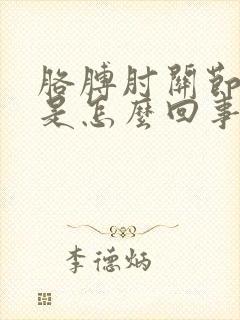 胳膊肘關節
是怎麼回事
李德炳